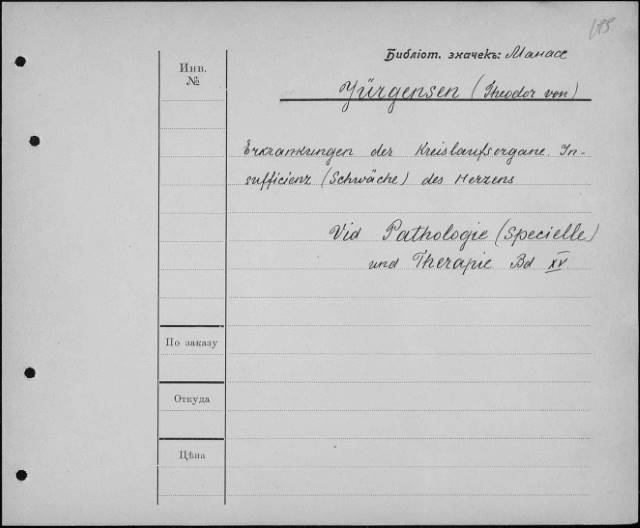 Библіот. значекъ: Манасс
Инв.
№
Yürgensen (Theodor von)
Erkrankungen der Kreislaufsorgane. In-
sufficienz (Schwäche) des Herzens
Vid Pathologie (Specielle)
und Therapie Bd XV
По заказу
Откуда
Цѣна